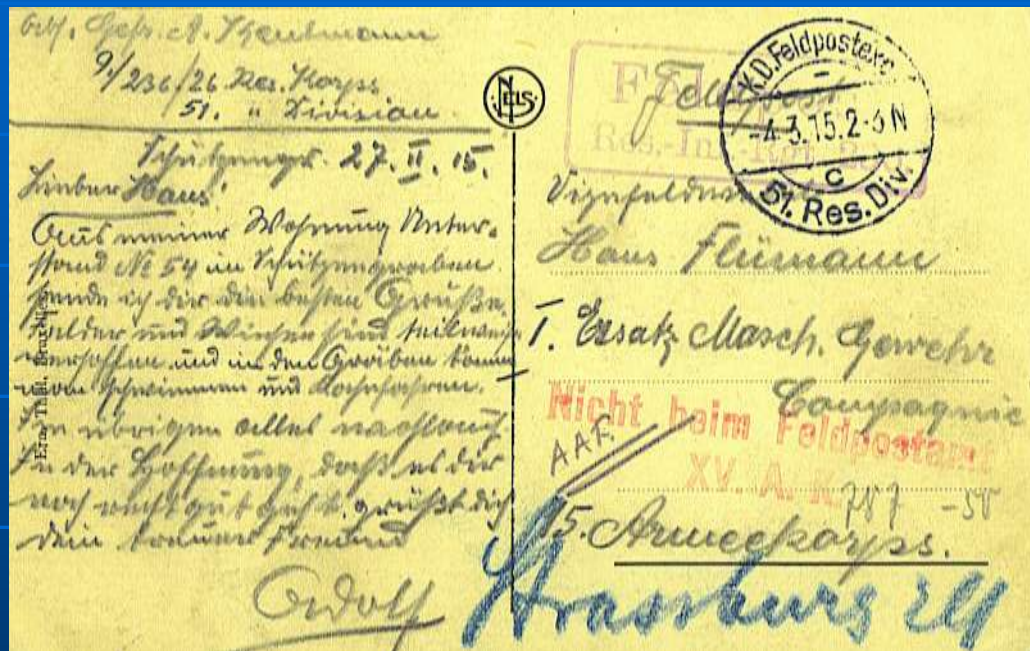 Gefr. A. Kaulmann
9./236/26 Res. Korps
51. " Division
Schützengr. 27. II. 15.
Lieber Hans!
Aus meiner Wohnung Unter-
stand № 54 im Schützengraben
sende ich dir die besten Grüße.
Felder und Wiesen sind teilweise
ersoffen und in den Gräben kann
man schwimmen und Kahnfahren.
Im übrigen alles
In der Hoffnung, daß es dir
noch recht gut geht, grüßt dich
dein treuer Freund
Adolf
Ern. Thill, Bruxelles
NELS
Feldpost
Res.-Inf.-
K.D. Feldpostexp.
-4.3.15.2-3N
c
51. Res. Div.
Vizefeldw.
Hans Flümann
I. Ersatz Masch. Gewehr
Compagnie
Nicht beim Feldpostamt
XV. A. K.
AAK
787 -
15. Armeekorps.
Strassburg